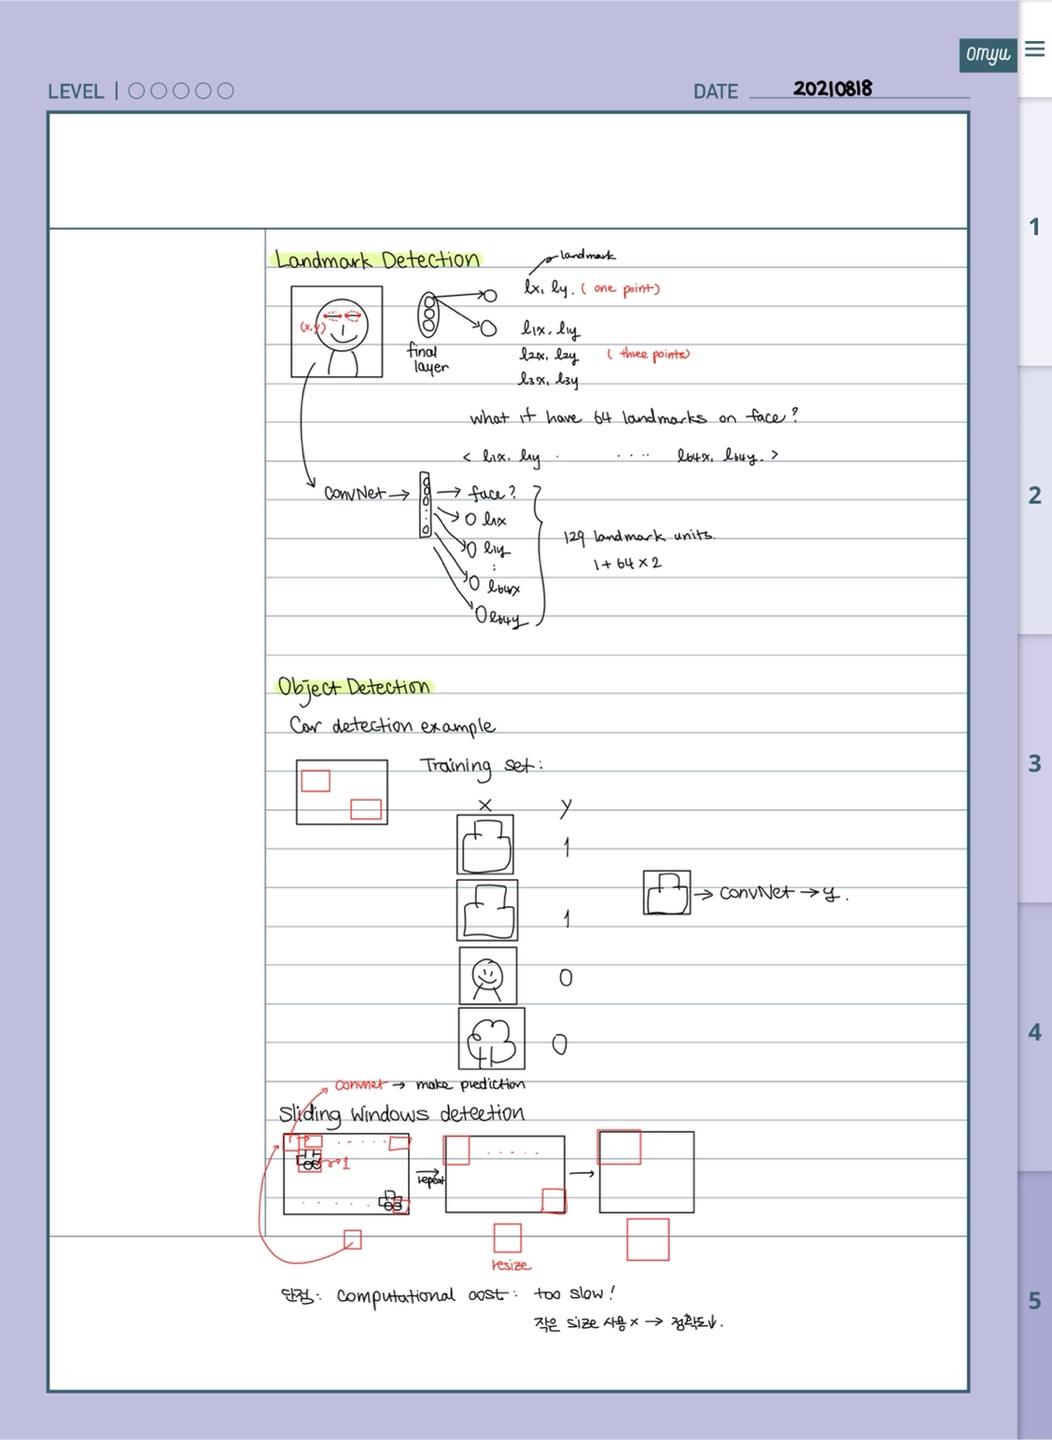 omyu
LEVEL | ○○○○○
DATE 20210818
1
2
3
4
5
Landmark Detection
landmark
lx, ly. ( one point)
(x,y)
l1x, l1y
final
layer
l2x, l2y ( three points)
l3x, l3y
what if have 64 landmarks on face?
< l1x, l1y . . . . . l64x, l64y. >
ConvNet → → face?
l1x
l1y
:
l64x
l64y
129 landmark units.
1 + 64 × 2
Object Detection
Car detection example
Training set:
x y
1
1
→ ConvNet → y.
0
0
Convnet → make prediction
Sliding windows detection
→ 1
repeat
resize
단점: Computational cost: too slow!
작은 size 사용 x → 정확도↓.